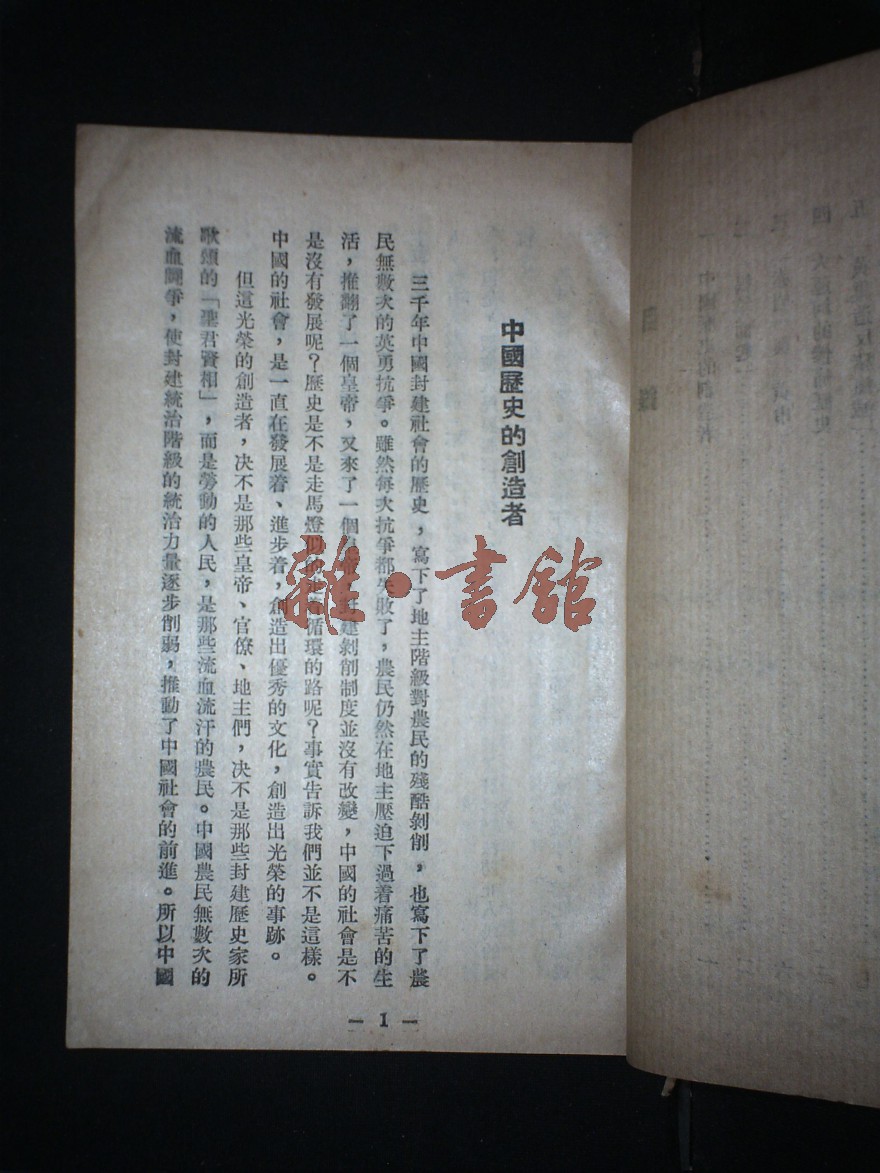 中國歷史的創造者
三千年中國封建社會的歷史，寫下了地主階級對農民的殘酷剝削，也寫下了農
民無數次的英勇抗爭。雖然每次抗爭都失敗了，農民仍然在地主壓迫下過着痛苦的生
活，推翻了一個皇帝，又來了一個皇帝，封建剝削制度並沒有改變，中國的社會是不
是沒有發展呢？歷史是不是走馬燈似的走着循環的路呢？事實告訴我們並不是這樣。
中國的社會，是一直在發展着、進步着，創造出優秀的文化，創造出光榮的事跡。
但這光榮的創造者，決不是那些皇帝、官僚、地主們，決不是那些封建歷史家所
歌頌的「聖君賢相」，而是勞動的人民，是那些流血流汗的農民。中國農民無數次的
流血鬪爭，使封建統治階級的統治力量逐步削弱，推動了中國社會的前進。所以中國
— 1 —
雜·書館